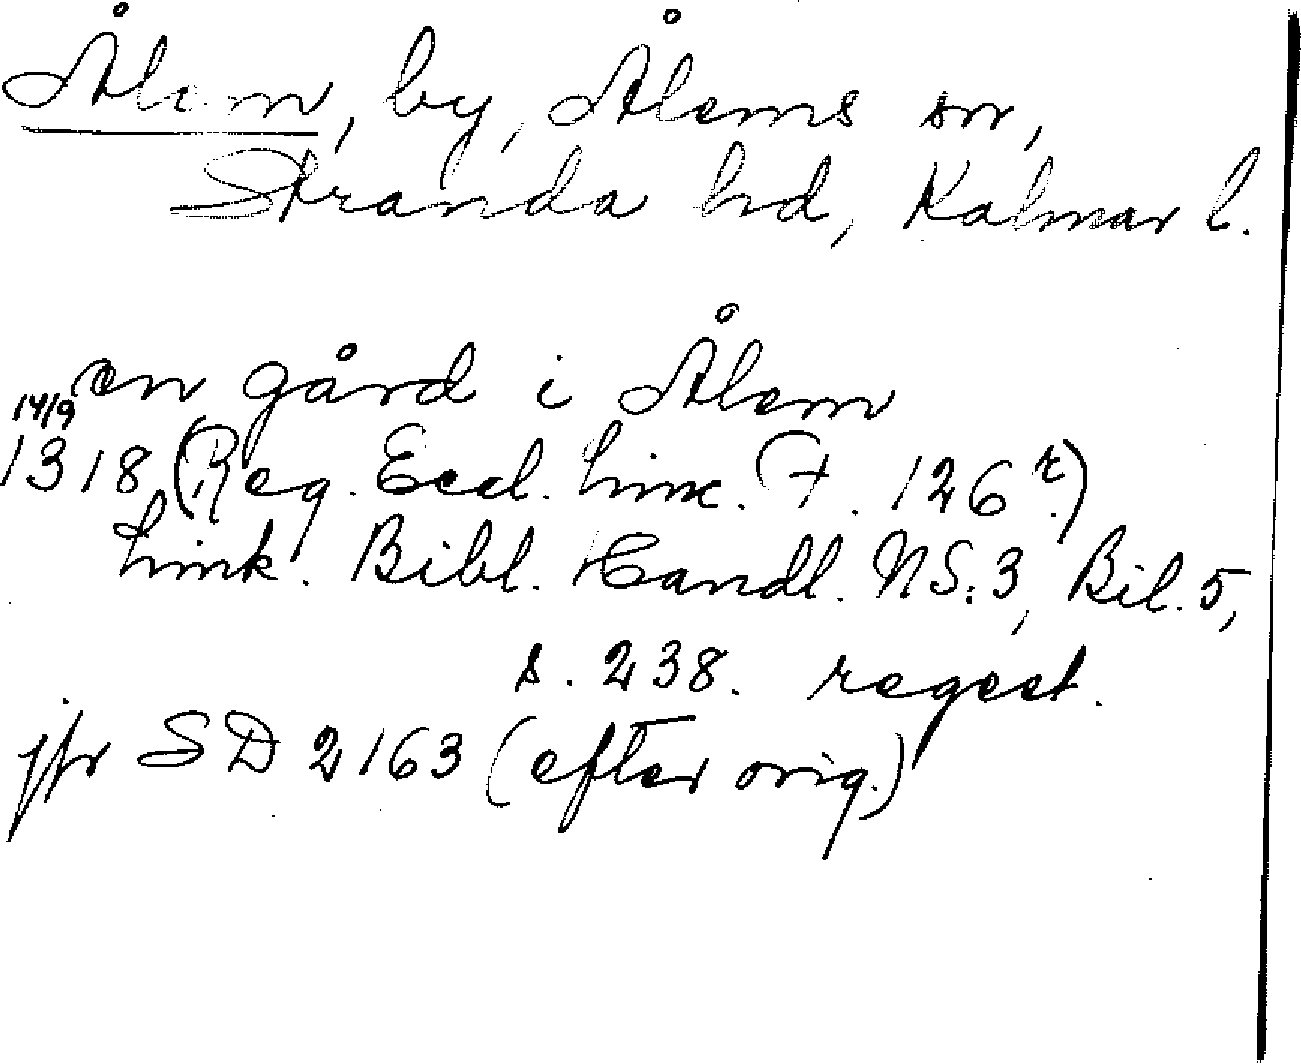 Ålem, by, Ålems sn,
Stranda hd, Kalmar l.
en gård i Ålem
14/9
1318 (Reg. Eccl. Linc. F. 126 r.)
Link. Bibl. Handl. NS:3, Bil. 5,
s. 238. regest.
jfr SD 2163 (efter orig.)